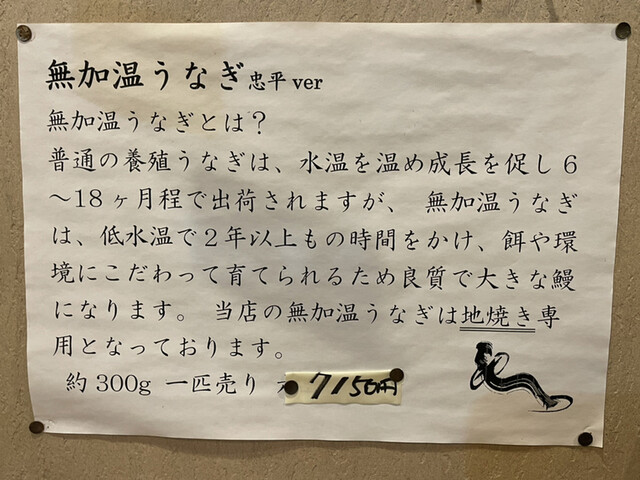 無加温うなぎ忠平ver
無加温うなぎとは？
普通の養殖うなぎは、水温を温め成長を促し6
～18ヶ月程で出荷されますが、 無加温うなぎ
は、低水温で2年以上もの時間をかけ、餌や環
境にこだわって育てられるため良質で大きな鰻
になります。 当店の無加温うなぎは地焼き専
用となっております。
約300g 一匹売り 7150円